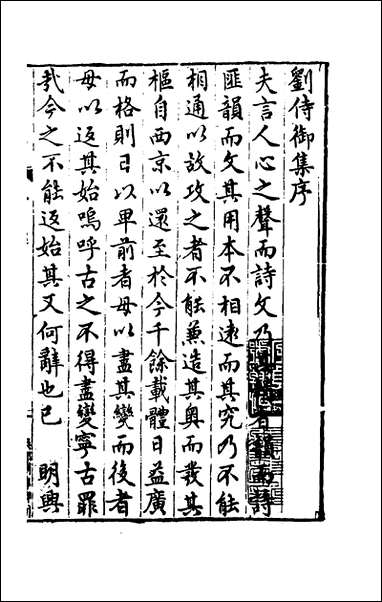 劉侍御集序
夫言人心之聲而詩文乃其精者韻而詩
匪韻而文其用本不相遠而其究乃不能
相通以故攻之者不能兼造其奥而發其
樞自西京以還至於今千餘載體日益廣
而格則日以卑前者毋以盡其變而後者
毋以返其始嗚呼古之不得盡變寧古罪
哉今之不能返始其又何辭也已 明興